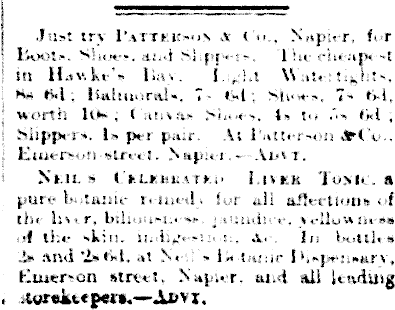 Just try PATTERSON & Co., Napier, for
Boots, Shoes, and Slippers. The cheapest
in Hawke's Bay. Light Watertights,
8s 6d; Balmorals, 7s 6d; Shoes, 7s 6d,
worth 10s; Canvas Shoes, 4s to 5s 6d;
Slippers, 1s per pair. At Patterson & Co.,
Emerson-street, Napier.—ADVT.
NEIL'S CELEBRATED LIVER TONIC, a
pure botanic remedy for all affections of
the liver, biliousness, jaundice, yellowness
of the skin, indigestion, &c. In bottles
2s and 2s 6d, at Neil's Botanic Dispensary,
Emerson street, Napier, and all leading
storekeepers.—ADVT.